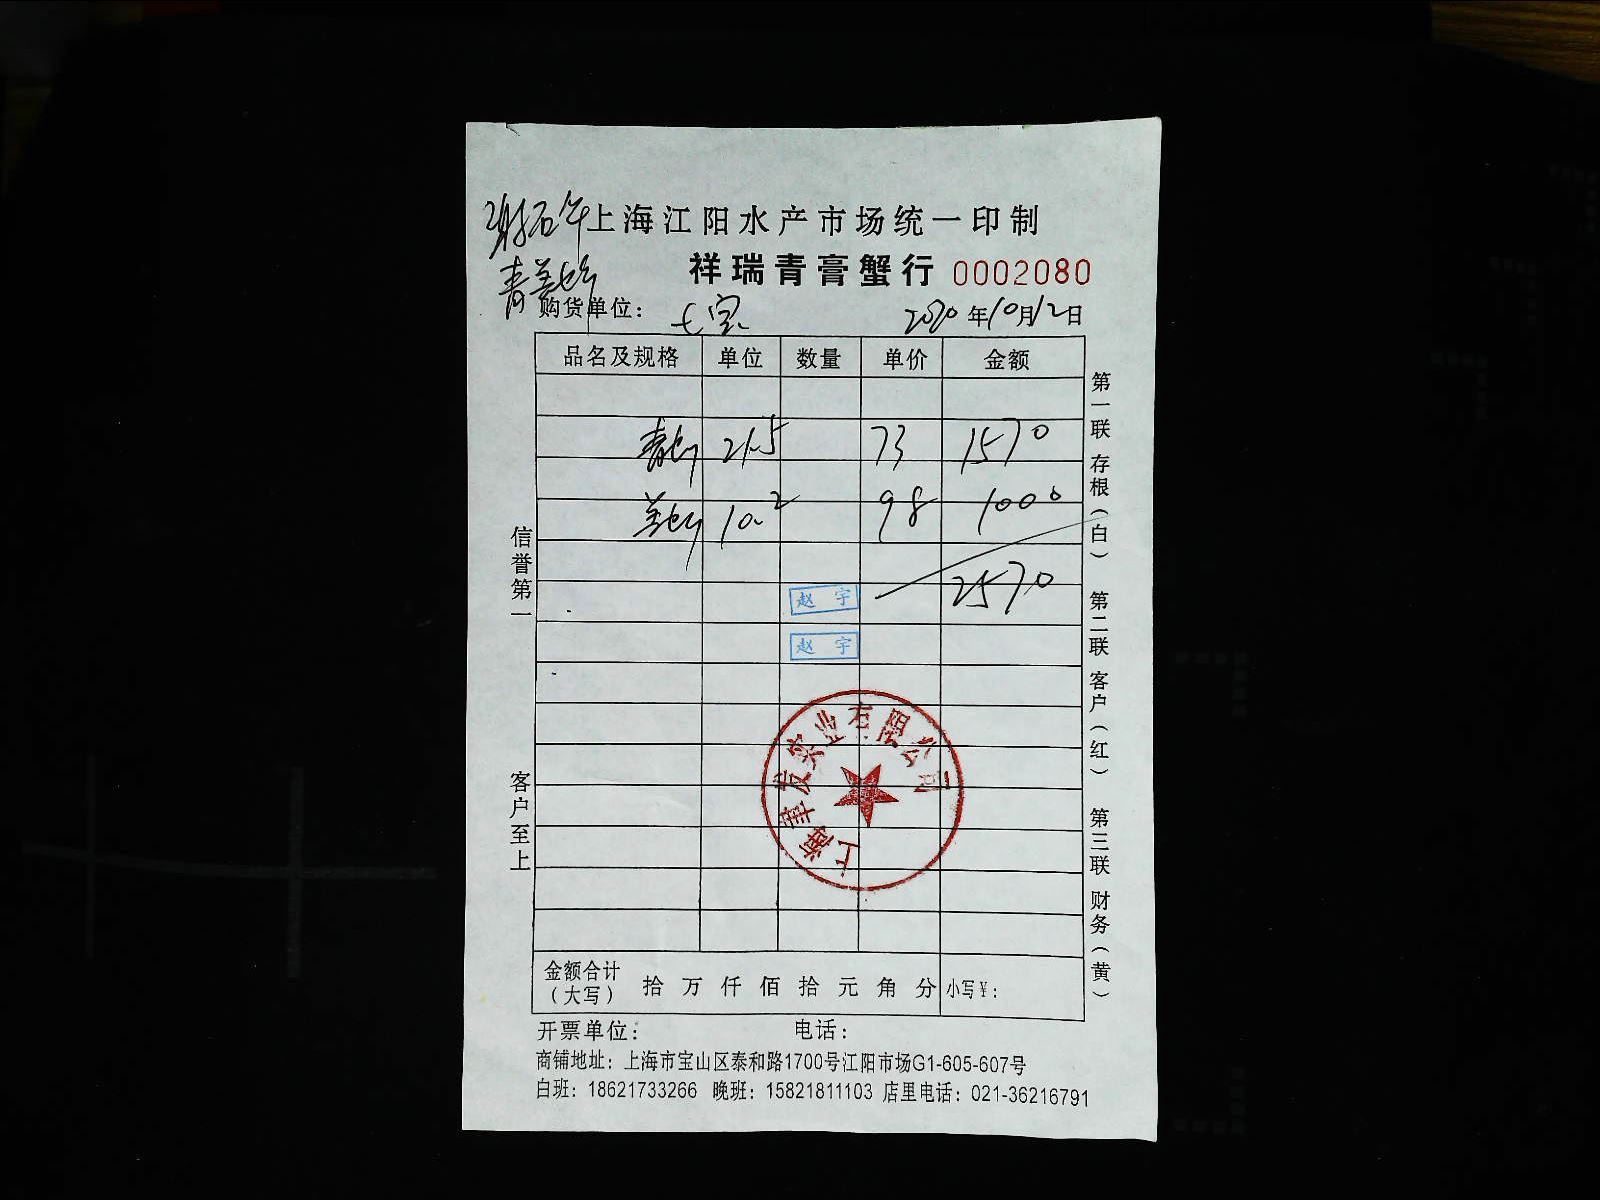 上海江阳水产市场统一印制
祥瑞青膏蟹行 0002080
购货单位： 七宝 2020年10月12日
品名及规格 单位 数量 单价 金额
21.5 73 1570
10.2 98 1000
2570
赵 宇
赵 宇
上海聿发实业有限公司
金额合计（大写） 拾 万 仟 佰 拾 元 角 分 小写￥：
开票单位： 电话：
商铺地址：上海市宝山区泰和路1700号江阳市场G1-605-607号
白班：18621733266 晚班：15821811103 店里电话：021-36216791
信誉第一
客户至上
第一联 存根（白） 第二联 客户（红） 第三联 财务（黄）